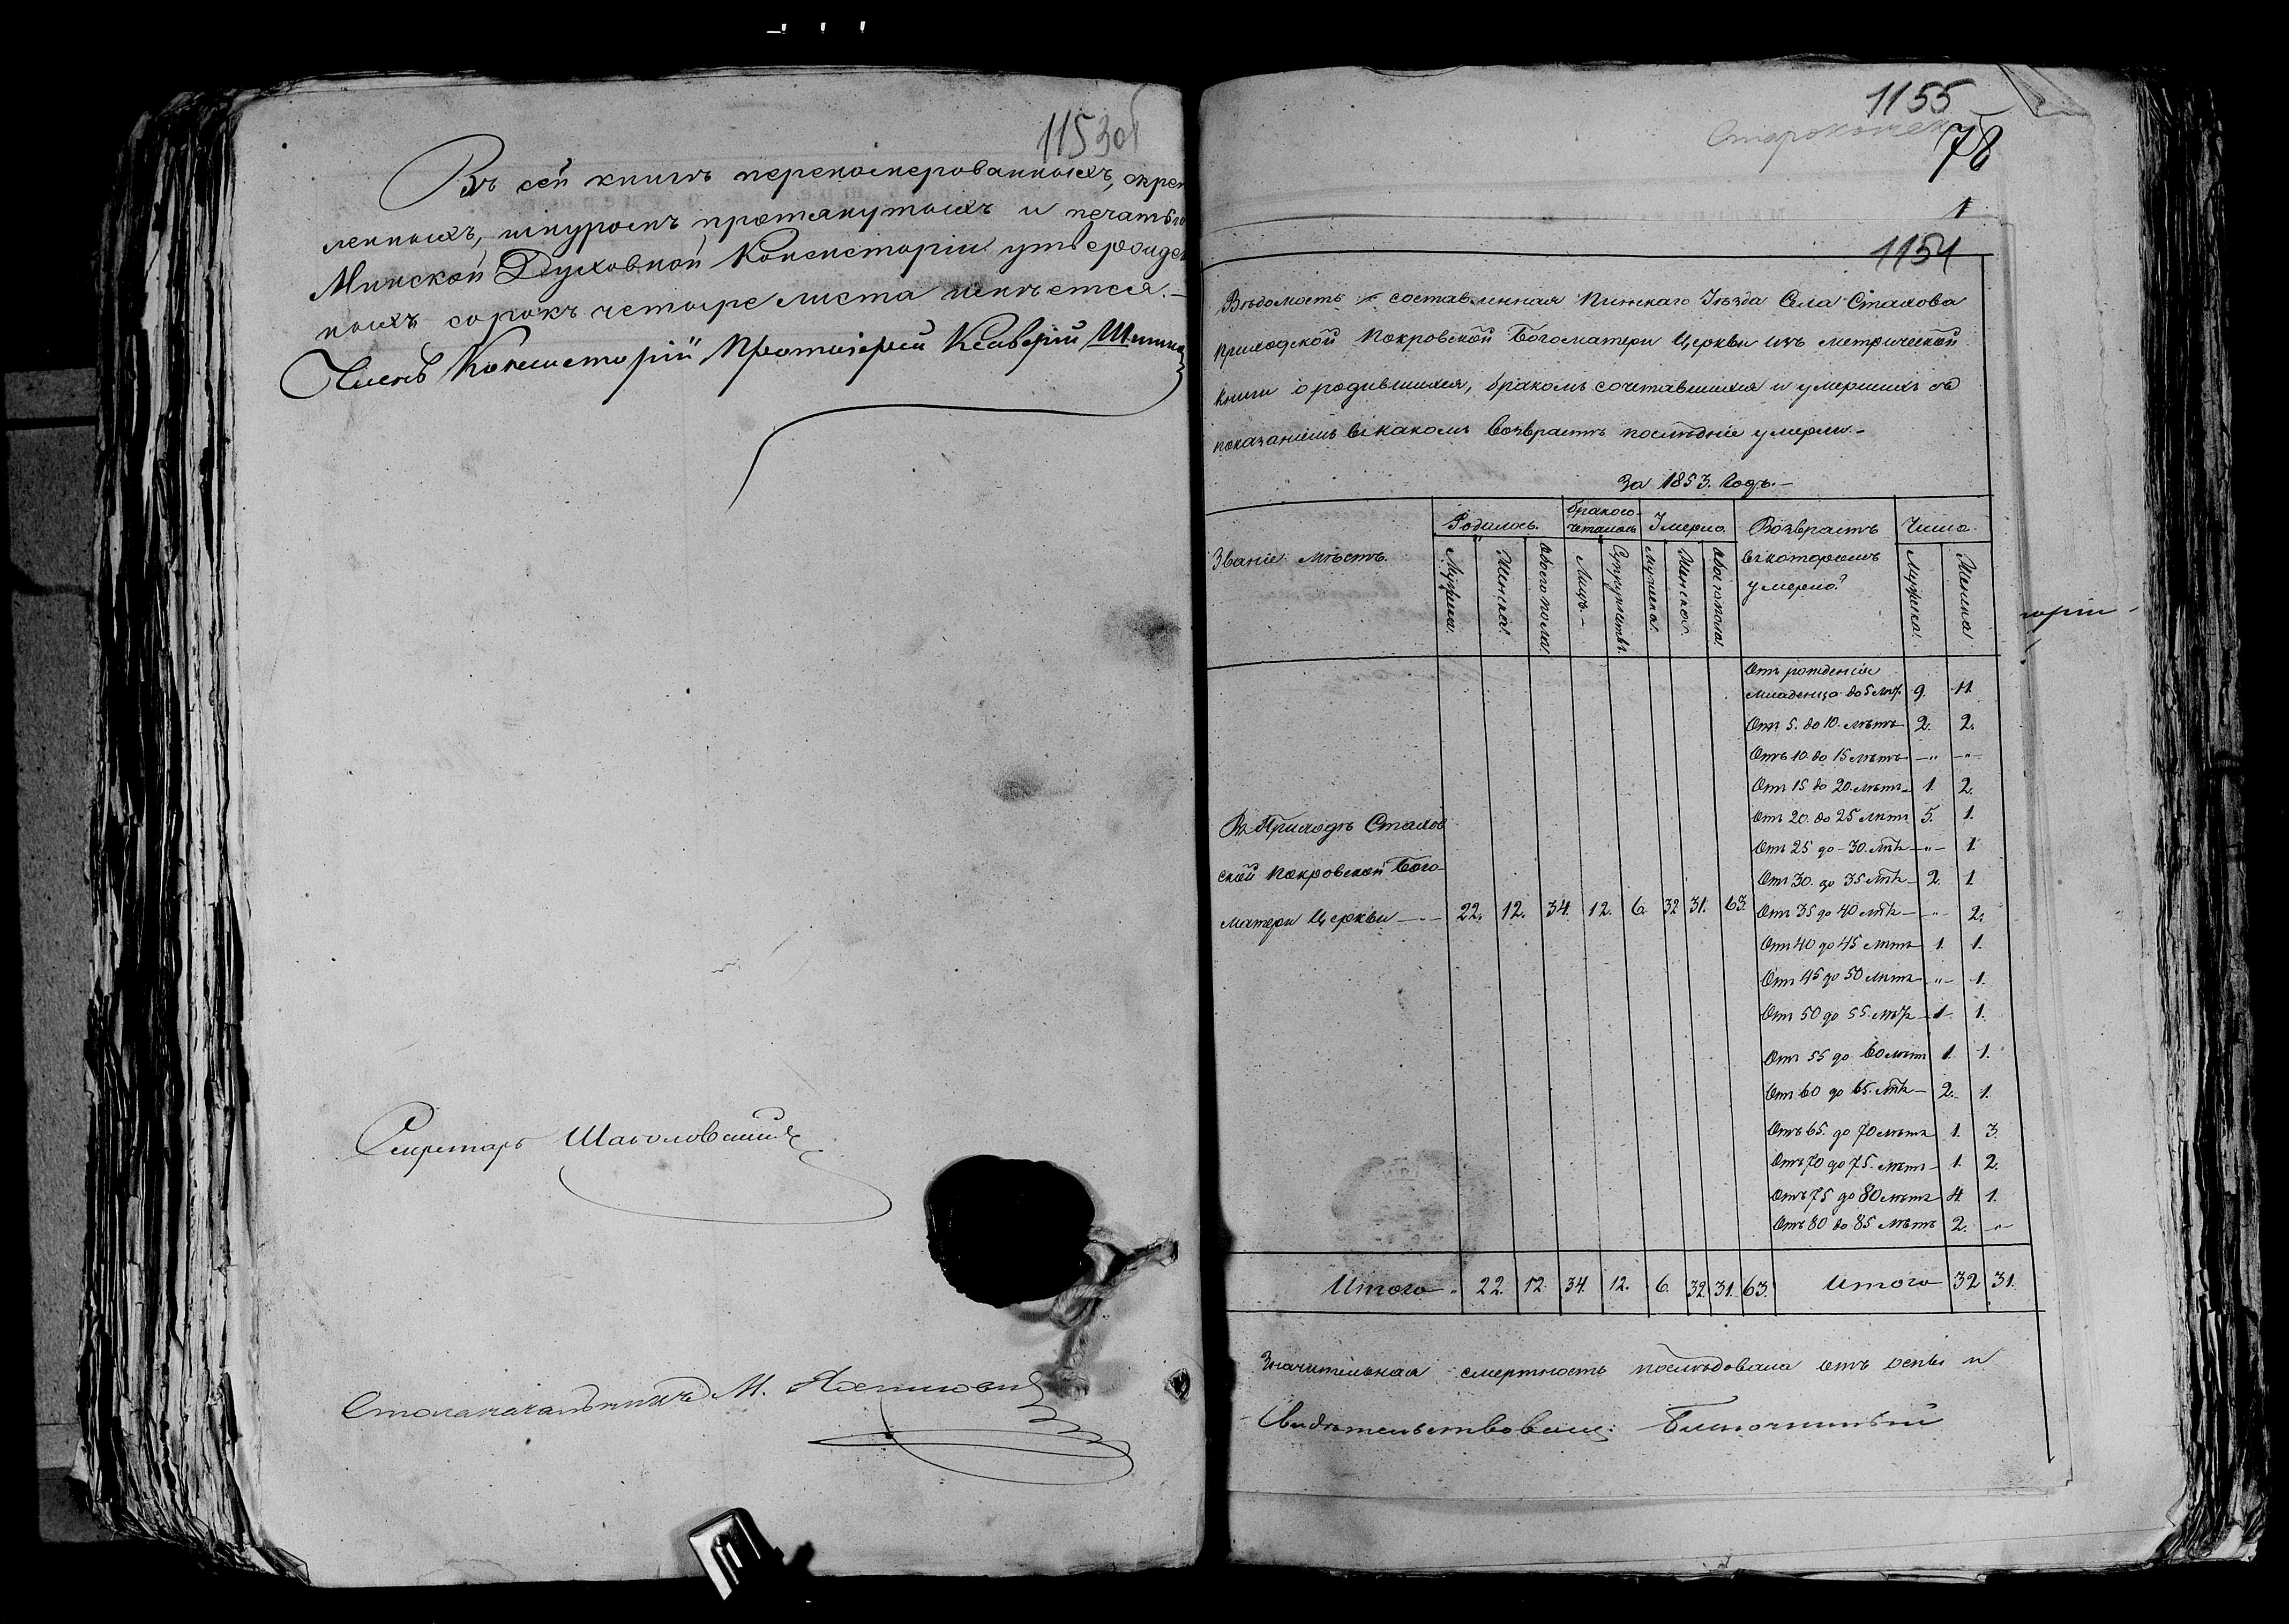 1153об
Въ сей книгѣ перенумерованныхъ, скреп
ленныхъ, шнуромъ протянутыхъ и печатью
Минской Духовной Консисторіи утвержден
ныхъ сорокъ четыре листа имѣется.—
Членъ Консисторіи Протоіерей Ксаверій
Секретарь
Столоначальникъ М.
1155
78
1
1154
Вѣдомость составленная Пинскаго Уѣзда Села Стахова
приходской Покровской Богоматери Церкви изъ метрической
книги о родившихся, бракомъ сочетавшихся и умершихъ съ
показаніемъ въ какомъ возврастѣ послѣдніе умерли.—
За 1853. Годъ.—
Званіе мѣстъ. Родилось. Бракосо- Умерло. Возврастъ Числа.
четалось
Мужеска. Женска. Обоего пола. Лицъ.— Супружествъ. Мужеска. Женска. Обоего пола. въ которомъ Мужеска. Женска.
умерло?
Отъ рожденія
младенца до 5 лѣтъ 9. 11.
Отъ 5. до 10. лѣтъ 2. 2.
Отъ 10. до 15 лѣтъ —„ —„—
Отъ 15 до 20. лѣтъ— 1. 2.
Отъ 20. до 25 лѣтъ 5. 1.
Отъ 25 до – 30. лѣтъ —„— 1.
Отъ 30. до 35 лѣтъ — 2. 1.
Отъ 35 до 40 лѣтъ — „— 2.
Отъ 40 до 45 лѣтъ 1. 1.
Отъ 45 до 50 лѣтъ „— 1.
Отъ 50 до 55. лѣтъ 1. 1.
Отъ 55 до 60 лѣтъ 1. 1.
Отъ 60 до 65. лѣтъ — 2. 1.
Отъ 65. до 70 лѣтъ 1. 3.
Отъ 70 до 75. лѣтъ — 1. 2.
Отъ 75 до 80 лѣтъ 4. 1.
Отъ 80 до 85 лѣтъ 2. „—
Въ Приходѣ Стахов
ской Покровской Бого—
матери Церкви —·— 22. 12. 34. 12. 6. 32 31. 63.
Итого „ 22. 12 34. 12. 6. 32. 31. 63. Итого 32 31.
Значительная смертность послѣдовала отъ оспы и
Свидѣтельствовалъ: Благочинный
торіи